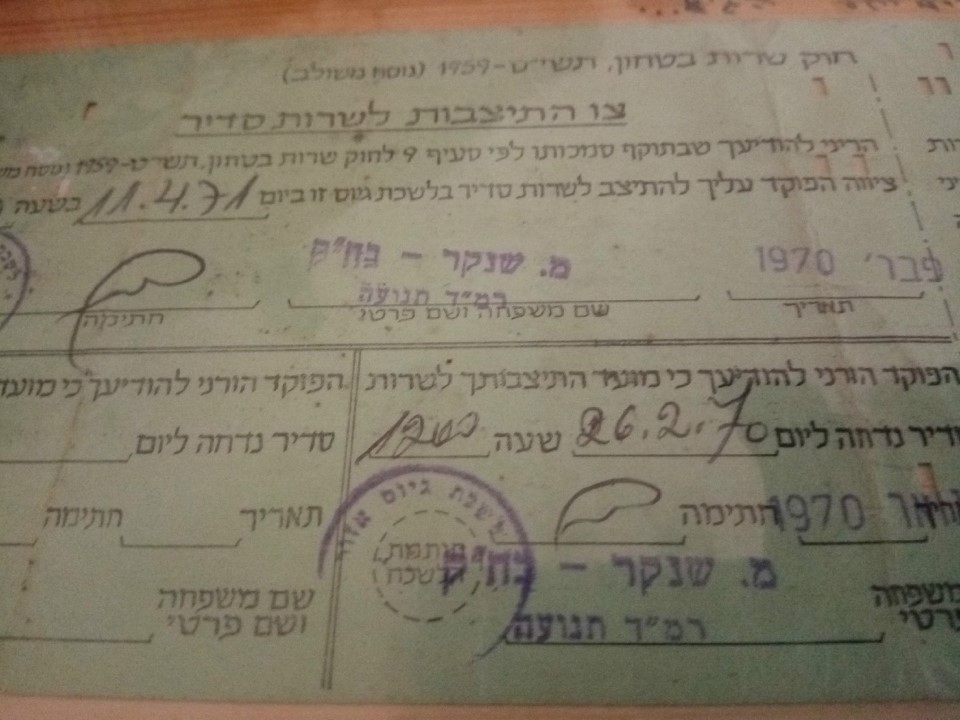 חוק שרות בטחון, תשי״ט-1959 (נוסח משולב)
צו התיצבות לשרות סדיר
הריני להודיעך שבתוקף סמכותו לפי סעיף 9 לחוק שרות בטחון, תשי״ט-1959 נוסח
ציווה הפוקד עליך להתיצב לשרות סדיר בלשכת גיוס זו ביום 11.4.71 בשעה
פבר׳ 1970
מ. שנקר -
רמ״ד תנועה
תאריך
שם משפחה ושם פרטי
חתימה
הפוקד הורני להודיעך כי מועד התיצבותך לשרות
סדיר נדחה ליום 26.2.70 שעה 1200
1970
חתימה
לשכת גיוס
חותמת
הלשכה
מ. שנקר -
רמ״ד תנועה
משפחה
פרטי
הפוקד הורני להודיעך כי מועד
סדיר נדחה ליום
תאריך
חתימה
שם משפחה
ושם פרטי